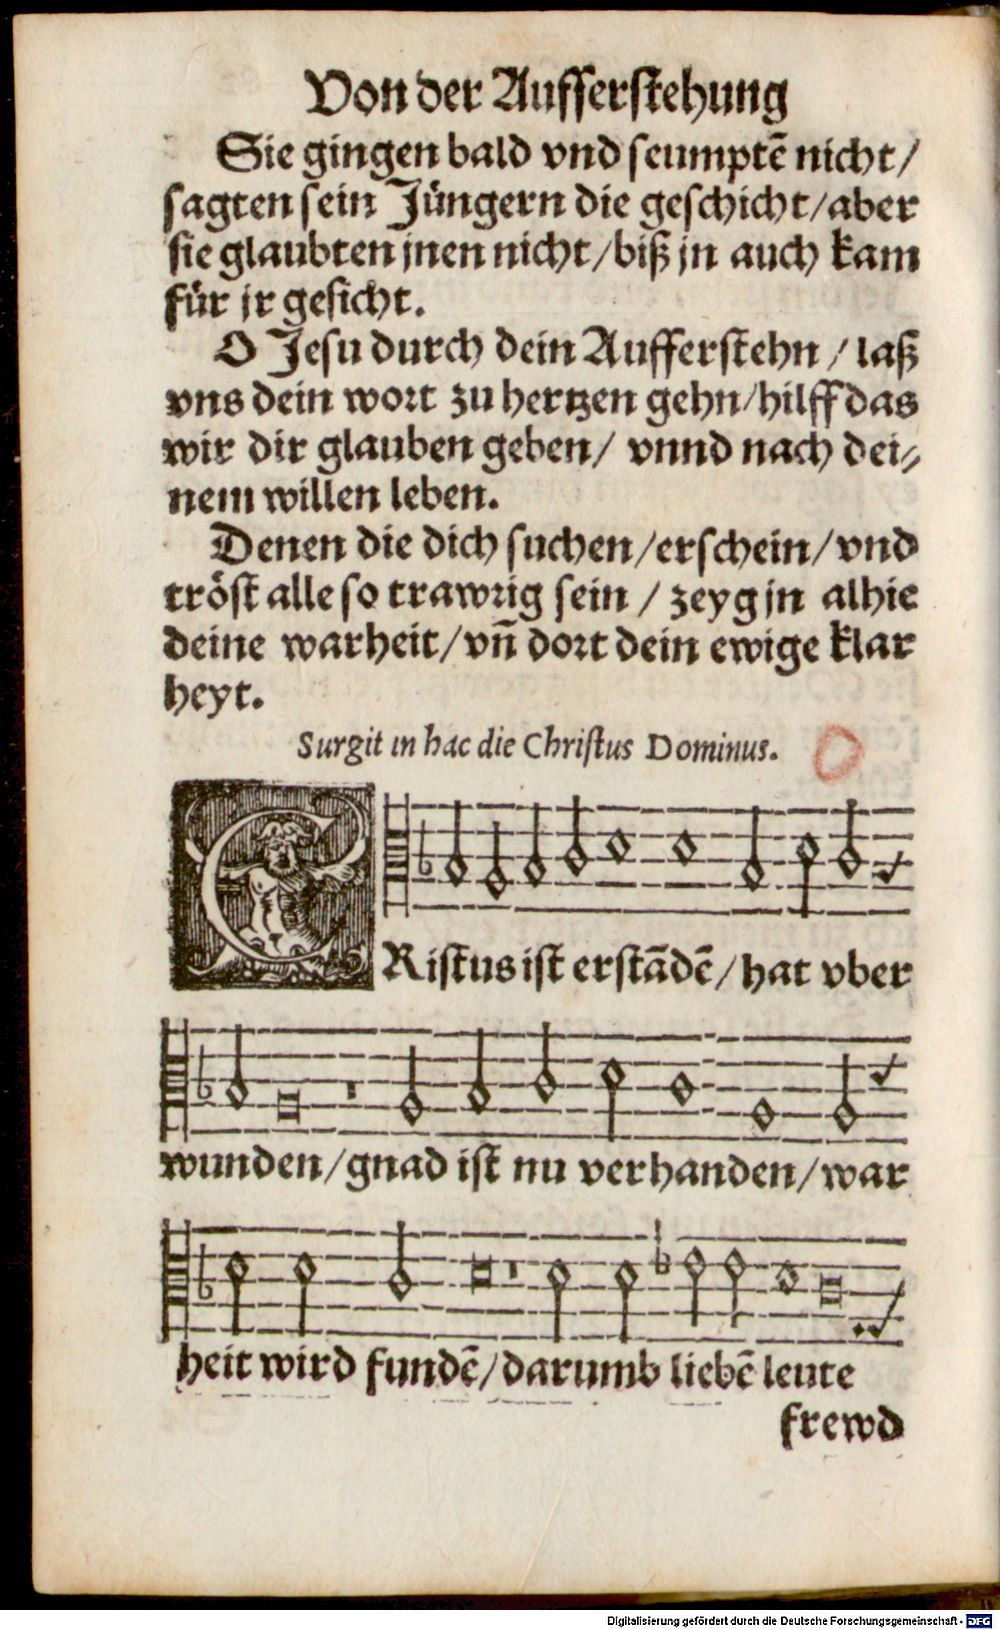 Von der Aufferstehung
Sie gingen bald vnd seumptē nicht/
sagten sein Jüngern die geschicht/aber
sie glaubten jnen nicht/biß jn auch kam
für jr gesicht.
O Jesu durch dein Aufferstehn/laß
vns dein wort zu hertzen gehn/hilff das
wir dir glauben geben/ vnnd nach dei⸗
nem willen leben.
Denen die dich suchen/erschein/vnd
tröst alle so trawrig sein/zeyg jn alhie
deine warheit/vn̄ dort dein ewige klar
heyt.
Surgit in hac die Christus Dominus.
CRistus ist erstādē/hat vber
wunden/gnad ist nu verhanden/war
heit wird fundē/darumb liebē leute
frewd
Digitalisierung gefördert durch die Deutsche Forschungsgemeinschaft - DFG